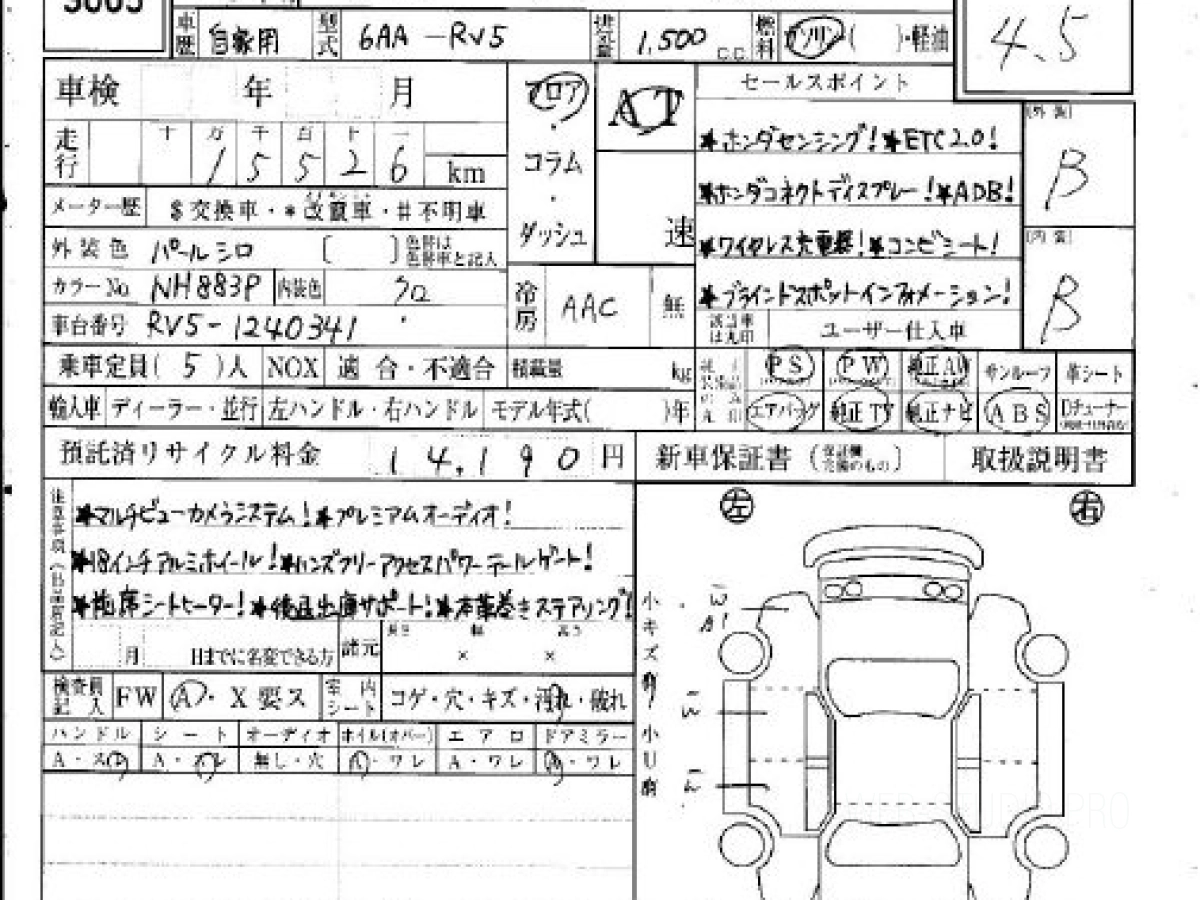 車歴 自家用 型式 6AA-RV5 排気量 1.500 C.C. 燃料 ガソリン( )・軽油
4.5
車検 年 月 フロア AT セールスポイント
走行 十 万 千 百 十 一
1 5 5 2 6 km
・コラム
・ダッシュ
速
*ホンダセンシング!*ETC2.0!
*ホンダコネクトディスプレー!*ADB!
*ワイヤレス充電器!*コンビシート!
*ブラインドスポットインフォメーション!
(外装) B
(内装) B
メーター歴 $交換車・*改置車・#不明車
外装色 パールシロ [ ]色替は色替車と記入
カラーNo. NH883P 内装色 クロ
冷房 AAC 無
該当車は丸印 ユーザー仕入車
車台番号 RV5-1240341
乗車定員(5)人 NOX 適合・不適合 積載量 kg
PS PW 純正AW サンルーフ 革シート
輸入車 ディーラー・並行 左ハンドル・右ハンドル モデル年式( )年
エアバッグ 純正TV 純正ナビ ABS Dチューナー
預託済リサイクル料金 14,190円 新車保証書(保証欄完備のもの) 取扱説明書
注意事項
*マルチビューカメラシステム!*プレミアムオーディオ!
*18インチアルミホイール!*ハンズフリーアクセスパワーテールゲート!
*前席シートヒーター!*後退出庫サポート!*本革巻きステアリング!
月 日までに名変できる方 諸元 長さ × 幅 × 高さ
検査員記入 FW A・X要ス 室内シート コゲ・穴・キズ・汚れ・破れ
ハンドル シート オーディオ ホイル(カバー) エアロ ドアミラー
A・スレ A・スレ 無し・穴 A・ワレ A・ワレ
左 右
小キズ有
小U有
W
A1
W